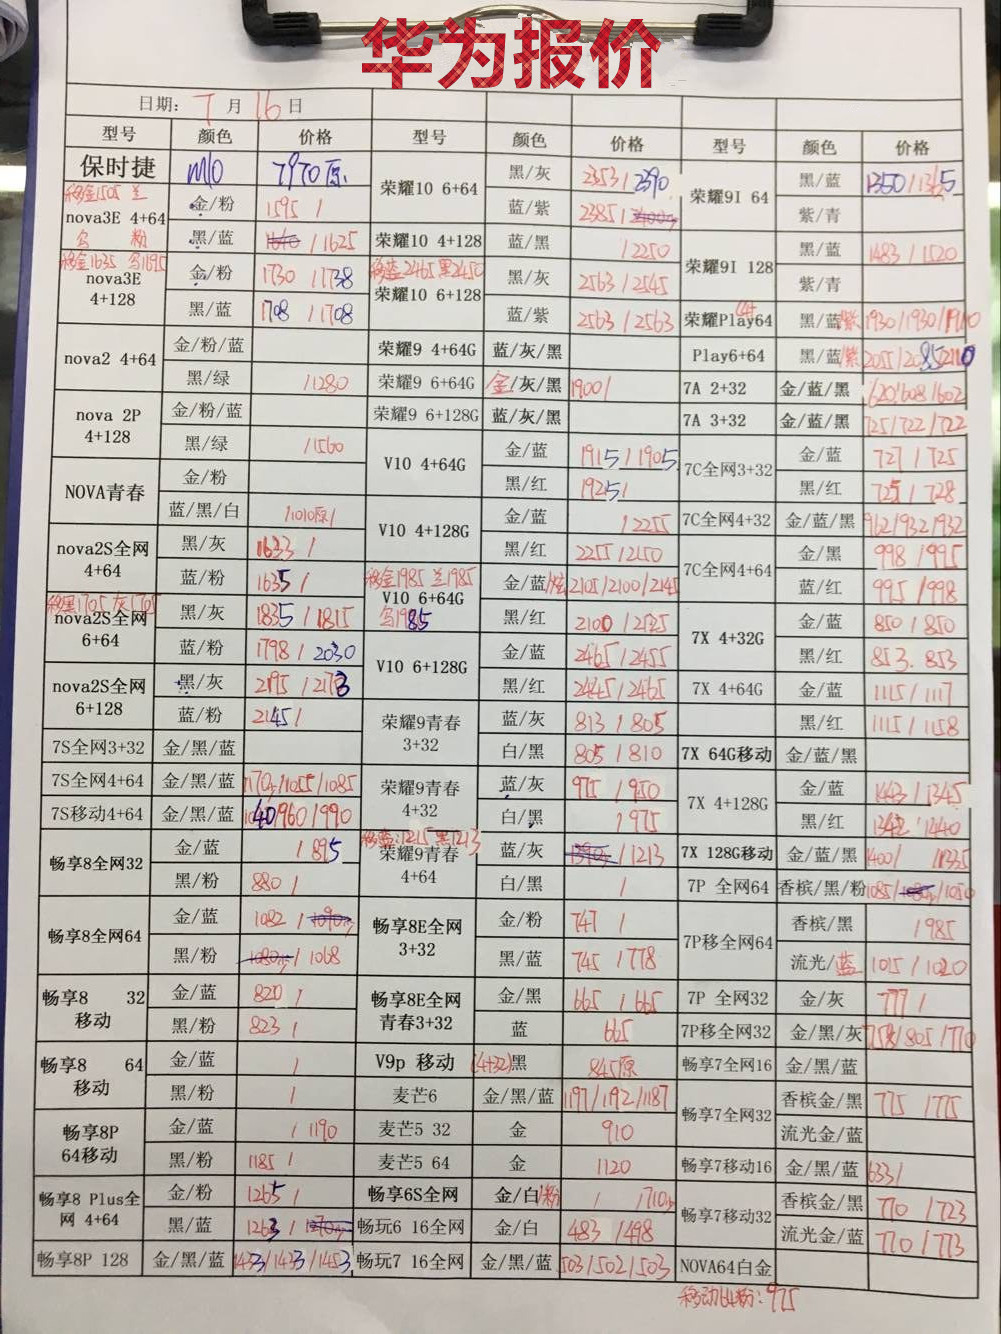 华为报价
日期: 7 月 16 日
型号 颜色 价格 型号 颜色 价格 型号 颜色 价格
保时捷 M10 7970原 荣耀10 6+64 黑/灰 2353/2390 荣耀9I 64 黑/蓝
移金1505 兰
nova3E 4+64 金/粉 1595 / 蓝/紫 2385/ 紫/青
乌 粉
黑/蓝 /1625 荣耀10 4+128 蓝/黑 /2250 荣耀9I 128 黑/蓝 1483/1520
移金1635 乌1695 移蓝2465 黑2450
nova3E 4+128 金/粉 1730 /1738 荣耀10 6+128 黑/灰 2563/2545 紫/青
黑/蓝 1708 /1708 蓝/紫 2563/2563 荣耀Play64 黑/蓝/紫 1930/1930/1910
nova2 4+64 金/粉/蓝 荣耀9 4+64G 蓝/灰/黑 Play6+64 黑/蓝/紫
黑/绿 /1280 荣耀9 6+64G 金/灰/黑 1900/ 7A 2+32 金/蓝/黑 620/608/602
nova 2P 4+128 金/粉/蓝 荣耀9 6+128G 蓝/灰/黑 7A 3+32 金/蓝/黑 725/722/722
黑/绿 /1560 V10 4+64G 金/蓝 1915/1905 7C全网3+32 金/蓝 727/725
NOVA青春 金/粉 黑/红 1925/ 黑/红 725/728
蓝/黑/白 /1010原/ V10 4+128G 金/蓝 /2255 7C全网4+32 金/蓝/黑 962/932/932
nova2S全网 4+64 黑/灰 1633 / 黑/红 2255/2150 7C全网4+64 金/黑 998/995
移金1985 兰1985
蓝/粉 1635 / V10 6+64G 金/蓝/炫 2105/2100/2145 蓝/红 995/998
移黑1705 灰1705 乌1985
nova2S全网 6+64 黑/灰 1835 /1815 黑/红 2100/2125 7X 4+32G 金/蓝 850/850
蓝/粉 1798 / 2030 V10 6+128G 金/蓝 2465/2455 黑/红 853.853
nova2S全网 6+128 黑/灰 2195 /2173 黑/红 2445/2465 7X 4+64G 金/蓝 1115/1117
蓝/粉 2145/ 荣耀9青春 3+32 蓝/灰 813/805 黑/红 1115/1158
7S全网3+32 金/黑/蓝 白/黑 805/810 7X 64G移动 金/蓝/黑
7S全网4+64 金/黑/蓝 /1055/1085 荣耀9青春 4+32 蓝/灰 975/950 7X 4+128G 金/蓝 /1345
7S移动4+64 金/黑/蓝 1040/960/990 白/黑 /975 黑/红 1342/1440
移蓝:1215 黑1213
畅享8全网32 金/蓝 /895 荣耀9青春 4+64 蓝/灰 /1213 7X 128G移动 金/蓝/黑 1400/ /1335
黑/粉 880 / 白/黑 / 7P 全网64 香槟/黑/粉 1085/ /1050
畅享8全网64 金/蓝 1082 / 畅享8E全网 3+32 金/粉 747 / 7P移全网64 香槟/黑 /985
黑/粉 /1068 黑/蓝 745/778 流光/蓝 1015/1020
畅享8 32 移动 金/蓝 820 / 畅享8E全网 青春3+32 金/黑 665/665 7P 全网32 金/灰 777/
黑/粉 823 / 蓝 665 7P移全网32 金/黑/灰 /805/770
畅享8 64 移动 金/蓝 / V9p 移动 (4+32)黑 845原 畅享7全网16 金/黑/蓝
黑/粉 / 麦芒6 金/黑/蓝 1197/1192/1187 畅享7全网32 香槟金/黑 775/775
畅享8P 64移动 金/蓝 /1190 麦芒5 32 金 910 流光金/蓝
黑/粉 1185 / 麦芒5 64 金 1120 畅享7移动16 金/黑/蓝 633/
畅享8 Plus全网 4+64 金/粉 1265 / 畅享6S全网 金/白/粉 / /710 畅享7移动32 香槟金/黑 710/723
黑/蓝 1263 / 畅玩6 16全网 金/白 483/498 流光金/蓝 770/773
畅享8P 128 金/黑/蓝 1433/1433/1453 畅玩7 16全网 金/黑/蓝 503/502/503 NOVA64白金
移动64粉:975